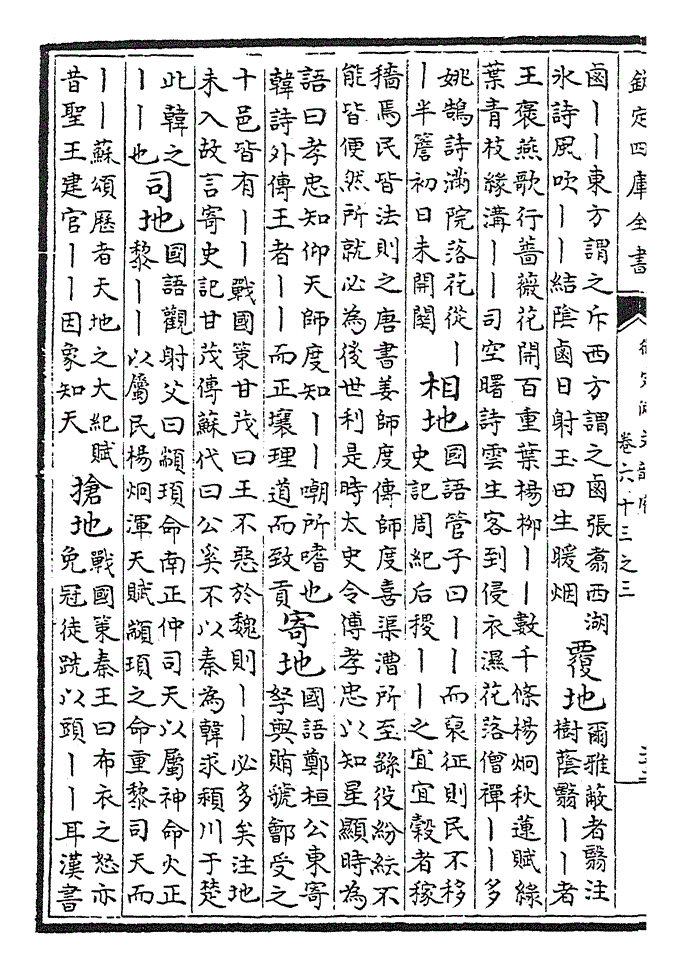 欽定四庫全書
卷六十三之三
鹵丨丨東方謂之斥西方謂之鹵張翥西湖
氷詩風吹丨丨結陰鹵日射玉田生暖烟
覆地
爾雅蔽者翳注
樹蔭翳丨丨者
王褒燕歌行薔薇花開百重葉楊柳丨丨數千條楊炯秋蓮賦緑
葉青枝緣溝丨丨司空曙詩雲生客到侵衣濕花落僧禪丨丨多
姚鵠詩滿院落花從丨
丨半簷初日未開關
相地
國語管子曰丨丨而衰征則民不移
史記周紀后稷丨丨之宜宜穀者稼
穡焉民皆法則之唐書姜師度傳師度喜渠漕所至繇役紛紜不
能皆便然所就必為後世利是時太史令傅孝忠以知星顯時為
語曰孝忠知仰天師度知丨丨嘲所嗜也
韓詩外傳王者丨丨而正壤理道而致貢
寄地
國語鄭桓公東寄
帑與賄虢鄶受之
十邑皆有丨丨戰國策甘茂曰王不惡於魏則丨丨必多矣注地
未入故言寄史記甘茂傳蘇代曰公奚不以秦為韓求潁川于楚
此韓之
丨丨也
司地
國語觀射父曰顓頊命南正仲司天以屬神命火正
黎丨丨以屬民楊炯渾天賦顓頊之命重黎司天而
丨丨蘇頌歷者天地之大紀賦
昔聖王建官丨丨因象知天
搶地
戰國策秦王曰布衣之怒亦
免冠徒跣以頭丨丨耳漢書